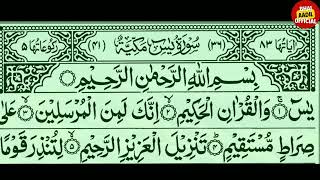 BHAI AADIL OFFICIAL
اٰیَاتُهَا ٨٣ (٣٦) سُوْرَةُ يٰسٓ مَكِّيَّةٌ (٤١) رُكُوْعَاتُهَا ٥
بِسْمِ اللّٰهِ الرَّحْمٰنِ الرَّحِيْمِ
يٰسٓ ۝١ وَالْقُرْاٰنِ الْحَكِيْمِ ۝٢ اِنَّكَ لَمِنَ الْمُرْسَلِيْنَ ۝٣ عَلٰى
صِرَاطٍ مُّسْتَقِيْمٍ ۝٤ تَنْزِيْلَ الْعَزِيْزِ الرَّحِيْمِ ۝٥ لِتُنْذِرَ قَوْمًا